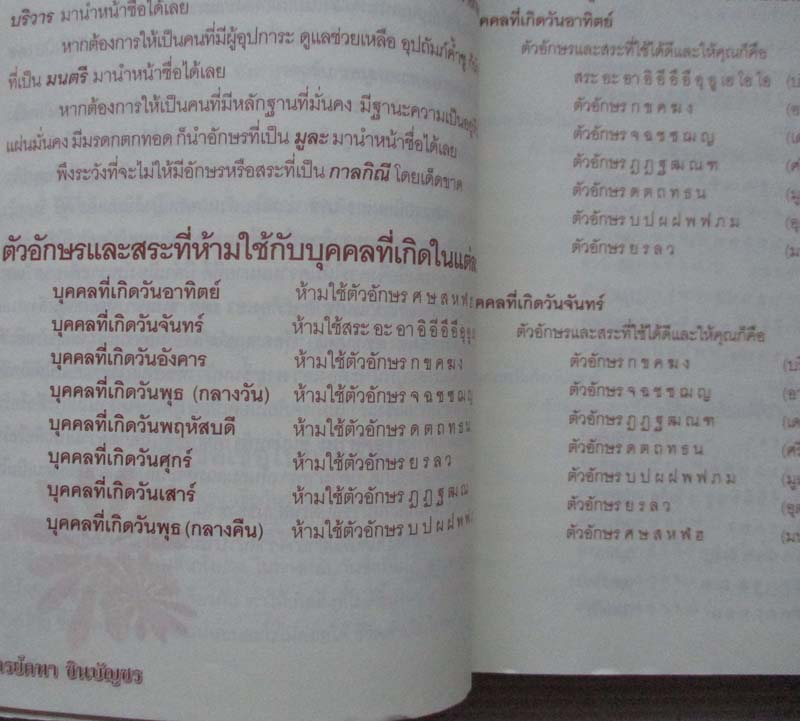 บริวาร มานำหน้าชื่อได้เลย
หากต้องการให้เป็นคนที่มีผู้อุปการะ ดูแลช่วยเหลือ อุปถัมภ์ค้ำชู
ที่เป็น มนตรี มานำหน้าชื่อได้เลย
หากต้องการให้เป็นคนที่มีหลักฐานที่มั่นคง มีฐานะความเป็นอยู่
แผ่นมั่นคง มีมรดกตกทอด ก็นำอักษรที่เป็น มูละ มานำหน้าชื่อได้เลย
พึงระวังที่จะไม่ให้มีอักษรหรือสระที่เป็น กาลกิณี โดยเด็ดขาด
ตัวอักษรและสระที่ห้ามใช้กับบุคคลที่เกิดในแต่ละ
บุคคลที่เกิดวันอาทิตย์ ห้ามใช้ตัวอักษร ศ ษ ส ห ฬ
บุคคลที่เกิดวันจันทร์ ห้ามใช้สระ อะ อา อิ อี อึ อื อุ
บุคคลที่เกิดวันอังคาร ห้ามใช้ตัวอักษร ก ข ค ฆ ง
บุคคลที่เกิดวันพุธ (กลางวัน) ห้ามใช้ตัวอักษร จ ฉ ช ซ ฌ ญ
บุคคลที่เกิดวันพฤหัสบดี ห้ามใช้ตัวอักษร ด ต ถ ท ธ น
บุคคลที่เกิดวันศุกร์ ห้ามใช้ตัวอักษร ย ร ล ว
บุคคลที่เกิดวันเสาร์ ห้ามใช้ตัวอักษร ฎ ฏ ฐ ฒ ณ
บุคคลที่เกิดวันพุธ (กลางคืน) ห้ามใช้ตัวอักษร บ ป ผ ฝ พ ฟ
ชินบัญชร
คคลที่เกิดวันอาทิตย์
ตัวอักษรและสระที่ใช้ได้ดีและให้คุณก็คือ
สระ อะ อา อิ อี อึ อื อุ อู เอ โอ ไอ
ตัวอักษร ก ข ค ฆ ง
ตัวอักษร จ ฉ ช ซ ฌ ญ
ตัวอักษร ฎ ฏ ฐ ฒ ณ ฑ
ตัวอักษร ด ต ถ ท ธ น
ตัวอักษร บ ป ผ ฝ พ ฟ ภ ม
ตัวอักษร ย ร ล ว
คคลที่เกิดวันจันทร์
ตัวอักษรและสระที่ใช้ได้ดีและให้คุณก็คือ
ตัวอักษร ก ข ค ฆ ง
ตัวอักษร จ ฉ ช ซ ฌ ญ
ตัวอักษร ฎ ฏ ฐ ฒ ณ ฑ
ตัวอักษร ด ต ถ ท ธ น
ตัวอักษร บ ป ผ ฝ พ ฟ ภ ม
ตัวอักษร ย ร ล ว
ตัวอักษร ศ ษ ส ห ฬ ฮ